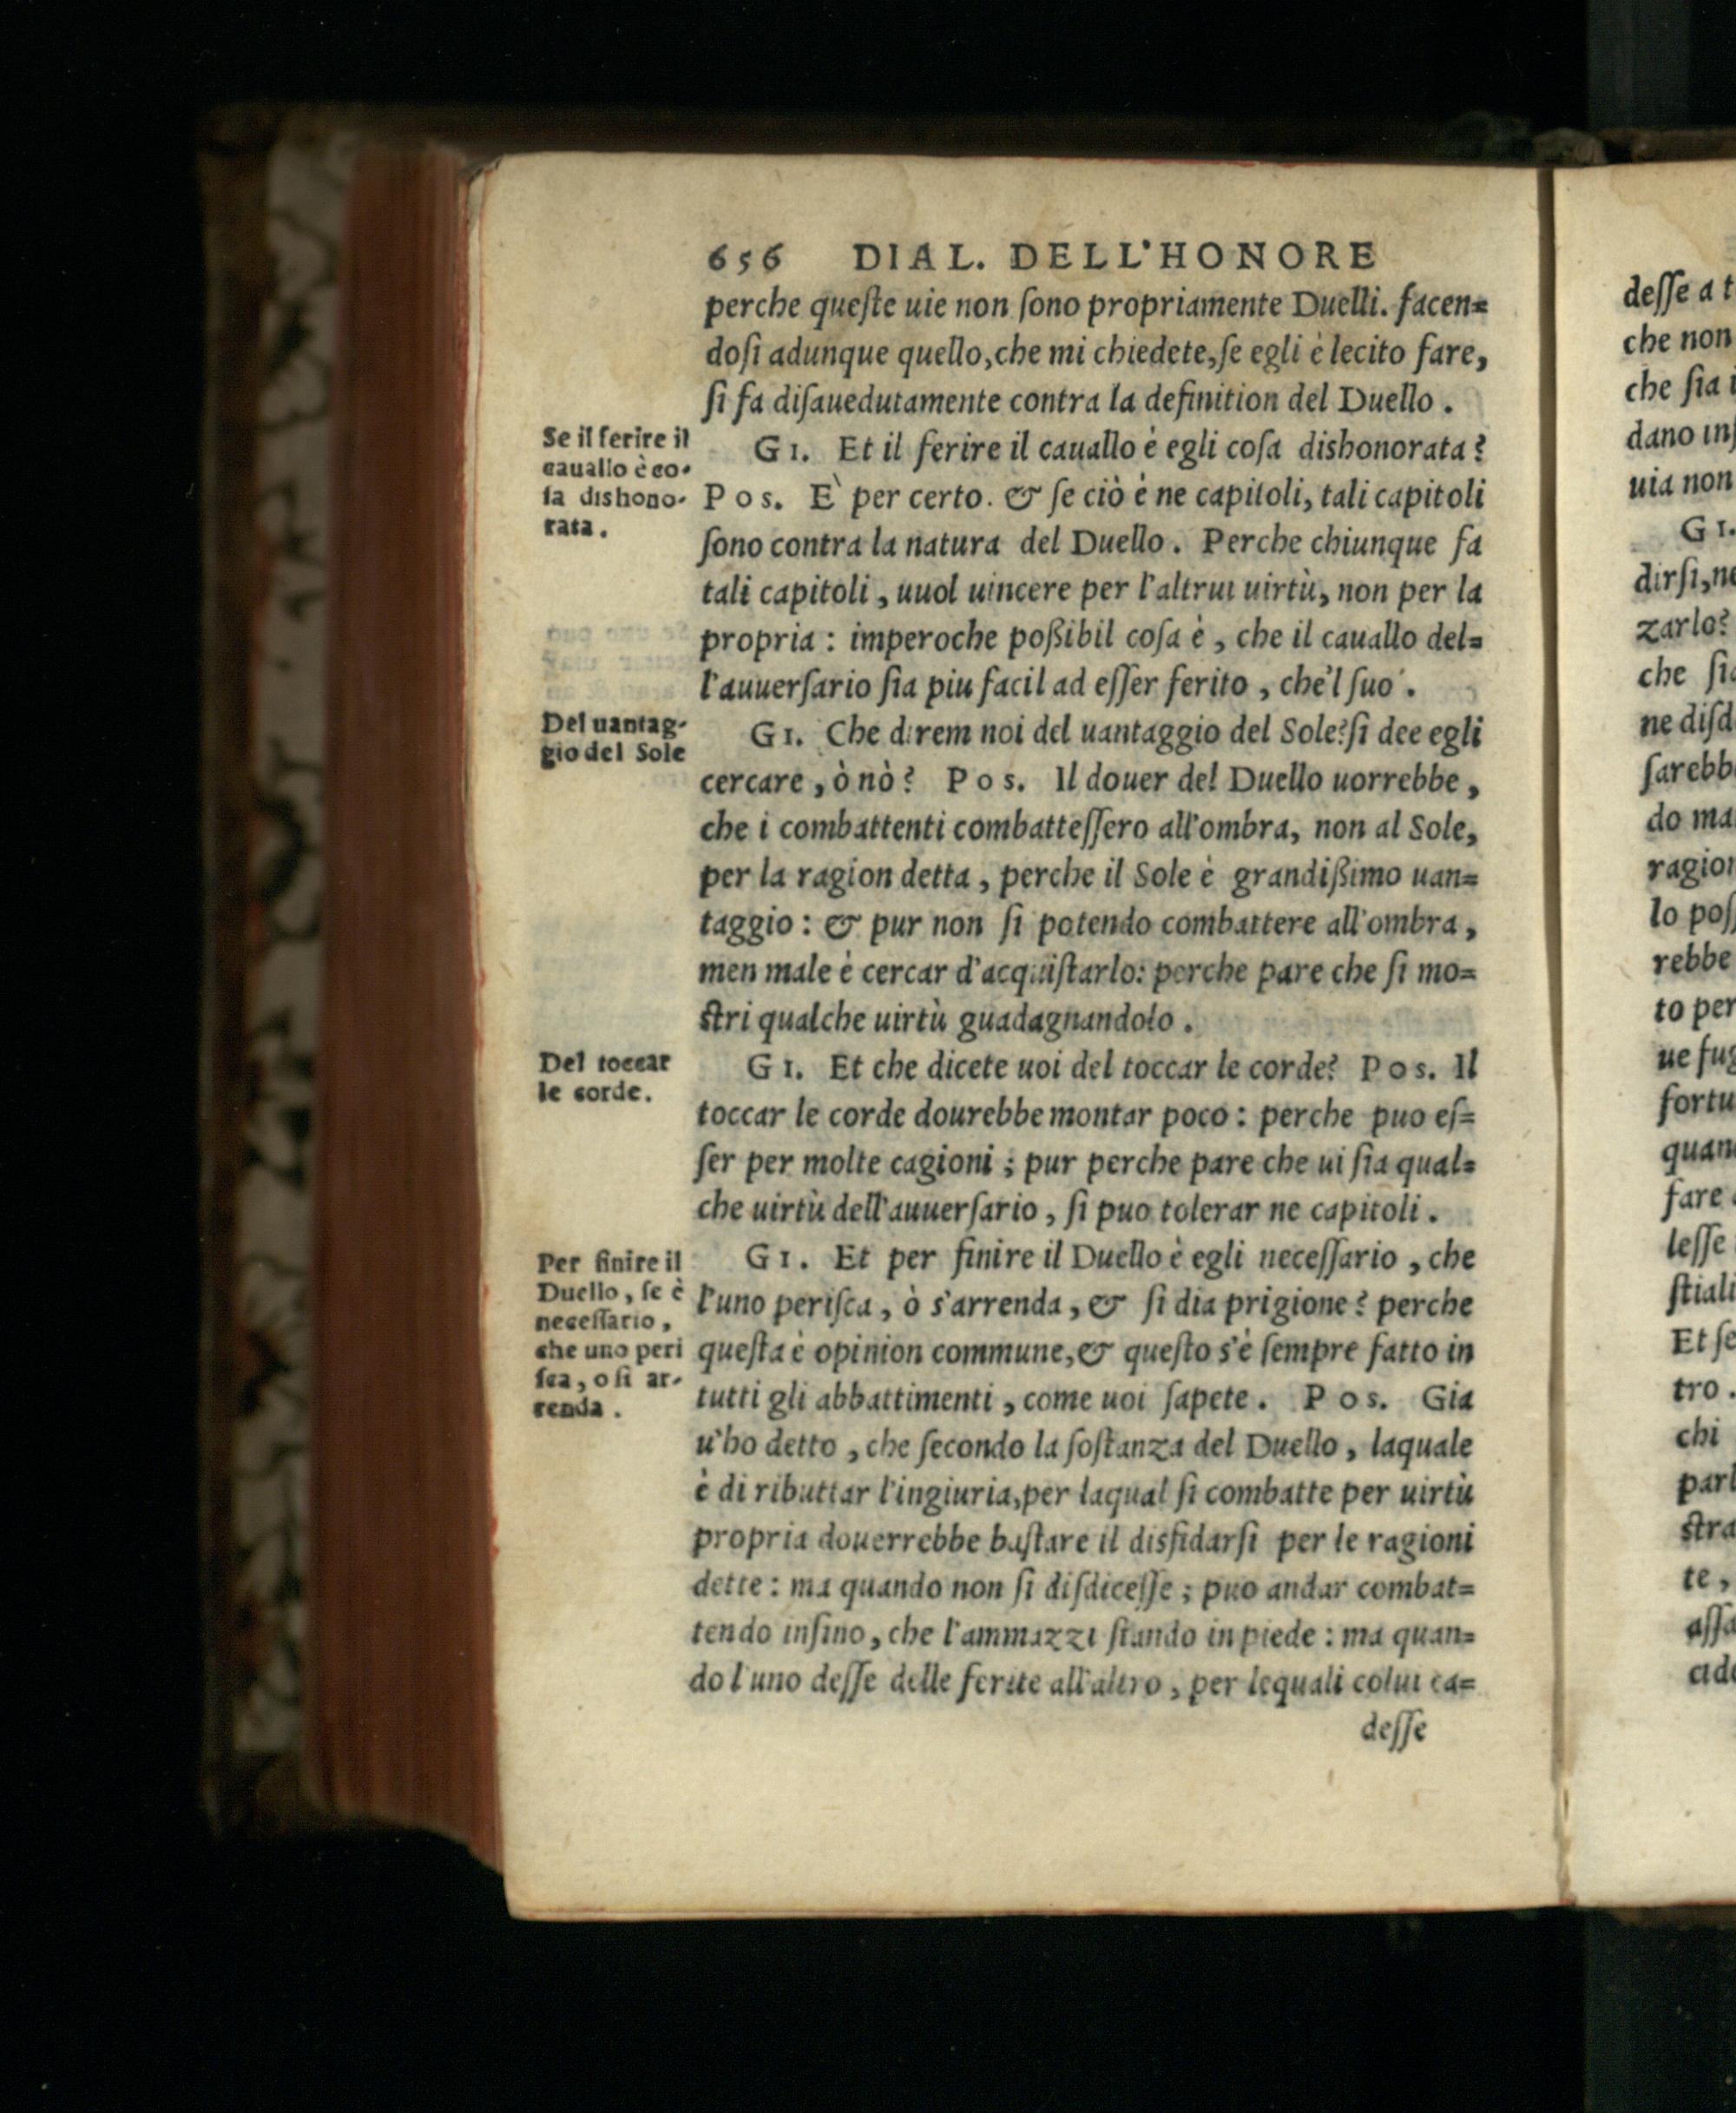 656 DIAL. DELL'HONORE
perche queſte uie non ſono propriamente Duelli. facen=
doſi adunque quello, che mi chiedete, ſe egli è lecito fare,
ſi fa diſauedutamente contra la definition del Duello.
Se il ferire il
cauallo è co-
ſa dishono-
rata.
GI. Et il ferire il cauallo è egli coſa dishonorata?
Pos. E` per certo. & ſe ciò è ne capitoli, tali capitoli
ſono contra la natura del Duello. Perche chiunque fa
tali capitoli, uuol uincere per l'altrui uirtù, non per la
propria: imperoche poßibil coſa è, che il cauallo del=
l'auuerſario ſia piu facil ad eſſer ferito, che'l ſuo.
Del uantag-
gio del Sole
GI. Che direm noi del uantaggio del Sole? ſi dee egli
cercare, ò nò? Pos. Il douer del Duello uorrebbe,
che i combattenti combatteſſero all'ombra, non al Sole,
per la ragion detta, perche il Sole è grandißimo uan=
taggio: & pur non ſi potendo combattere all'ombra,
men male è cercar d'acquiſtarlo: perche pare che ſi mo=
ſtri qualche uirtù guadagnandolo.
Del toccar
le corde.
GI. Et che dicete uoi del toccar le corde? Pos. Il
toccar le corde dourebbe montar poco: perche puo eſ=
ſer per molte cagioni; pur perche pare che ui ſia qual=
che uirtù dell'auuerſario, ſi puo tolerar ne capitoli.
Per finire il
Duello, ſe è
neceſſario,
che uno peri
ſca, o ſi ar-
renda.
GI. Et per finire il Duello è egli neceſſario, che
l'uno periſca, ò s'arrenda, & ſi dia prigione? perche
queſta è opinion commune, & queſto s'è ſempre fatto in
tutti gli abbattimenti, come uoi ſapete. Pos. Gia
u'ho detto, che ſecondo la ſoſtanza del Duello, laquale
è di ributtar l'ingiuria, per laqual ſi combatte per uirtù
propria douerrebbe baſtare il disfidarſi per le ragioni
dette: ma quando non ſi diſdiceſſe; puo andar combat=
tendo inſino, che l'ammazzi ſtando in piede: ma quan=
do l'uno deſſe delle ferite all'altro, per lequali colui ca=
deſſe
deſſe a t
che non
che ſia i
dano inſ
uia non
GI.
dirſi, ne
zarlo?
che ſia
ne diſd
ſarebbe
do ma
ragion
lo poſſ
rebbe
to per
ue fug
fortu
quan
fare
leſſe
ſtiali
Et ſe
tro.
chi
parl
ſtra
te,
aſſa